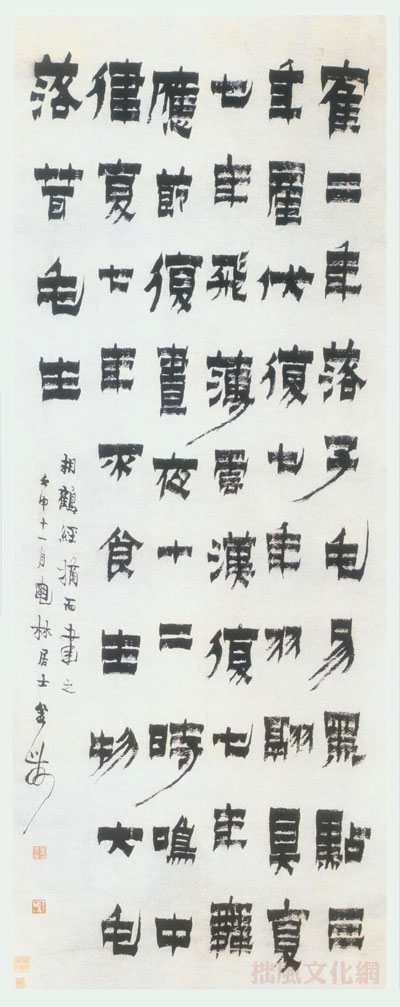 寉二年落子毛易黑點三
年產伏復七年羽翮具复
七年飛薄雲漢復七年舞
應節復晝夜十二時鳴中
律复七年不食生物大毛
落茸毛生
相鶴經摘而書之
壬申十一月林居士金農
拙風文化網